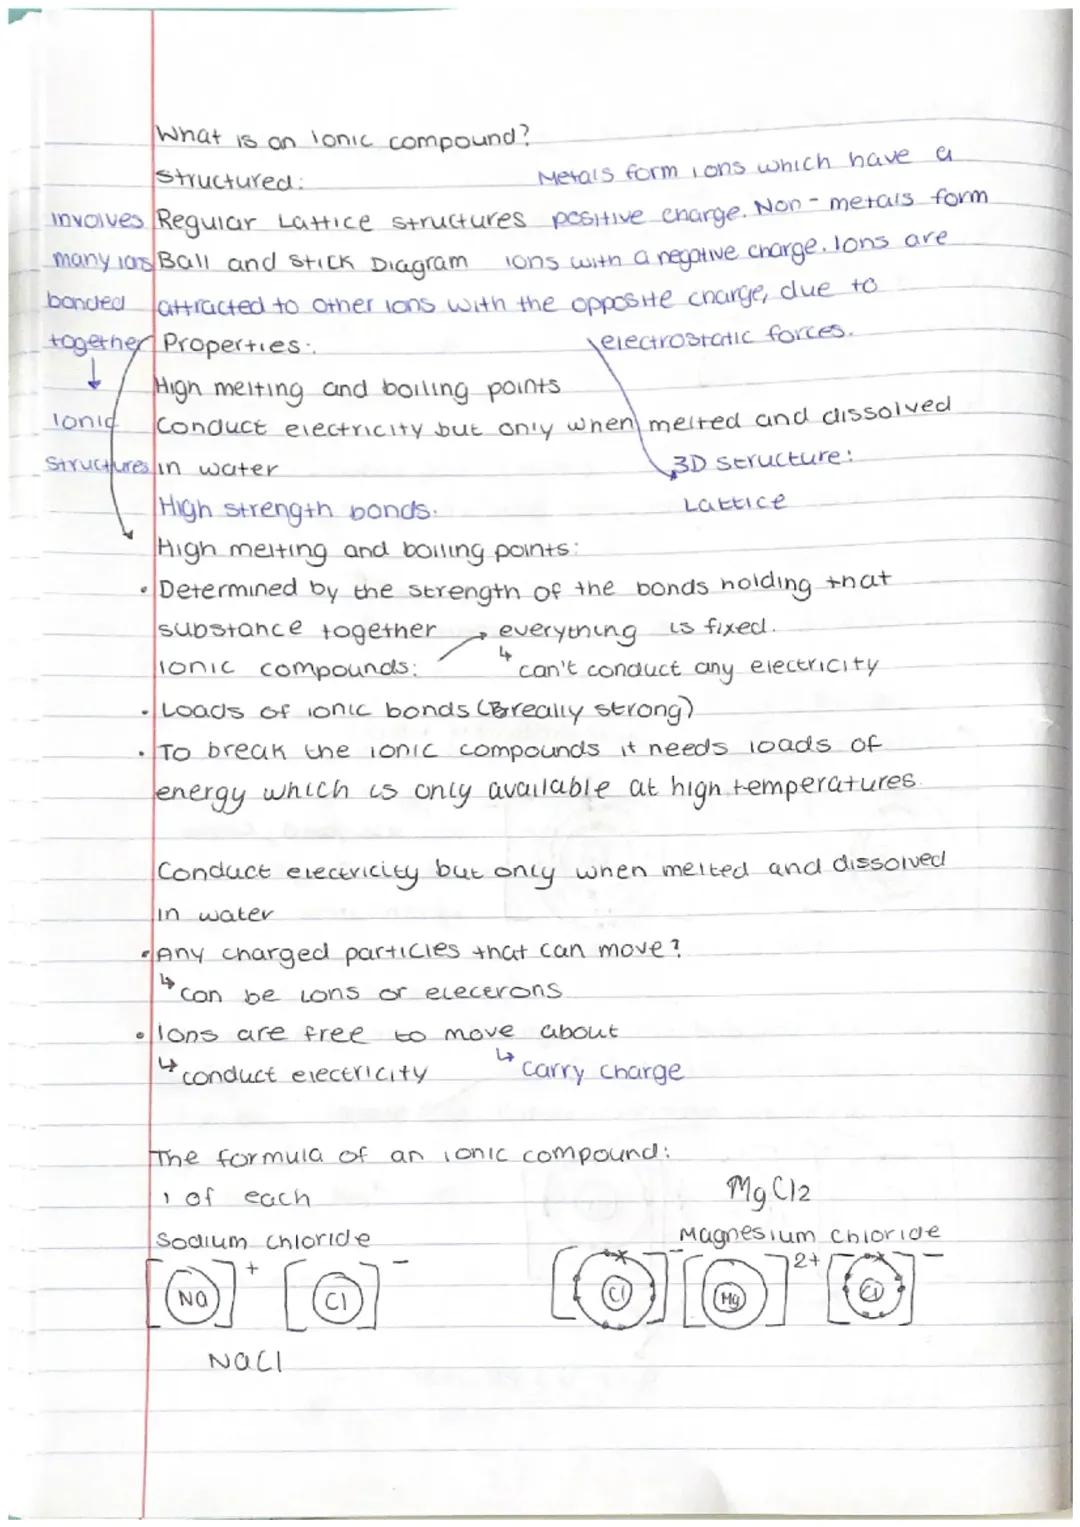 What is an Ionic compound?
Structured:
Metals form ions which have a
involves Regular Lattice structures positive charge. Non-metals form
many ions Ball and stick Diagram ions with a negative charge. Ions are
bonded attracted to other ions with the opposite charge, due to
together Properties:. electrostatic forces.
↓ High melting and boiling points
Ionic Conduct electricity but only when melted and dissolved
Structures in water 3D structure:
High strength bonds. Lattice
High melting and boiling points:
• Determined by the strength of the bonds holding that
substance together → everything is fixed.
Ionic compounds: ↳ can't conduct any electricity
• Loads of ionic bonds (Breally strong)
• To break the ionic compounds it needs loads of
energy which is only available at high temperatures.
Conduct electricity but only when melted and dissolved
in water
• Any charged particles that can move?
↳ can be ions or elecerons
• Ions are free to move about
↳ conduct electricity ↳ carry charge
The formula of an ionic compound:
1 of each MgCl2
Sodium chloride Magnesium chloride
[Na]+ [Cl]- [Cl]- [Mg]2+ [Cl]-
NaCl